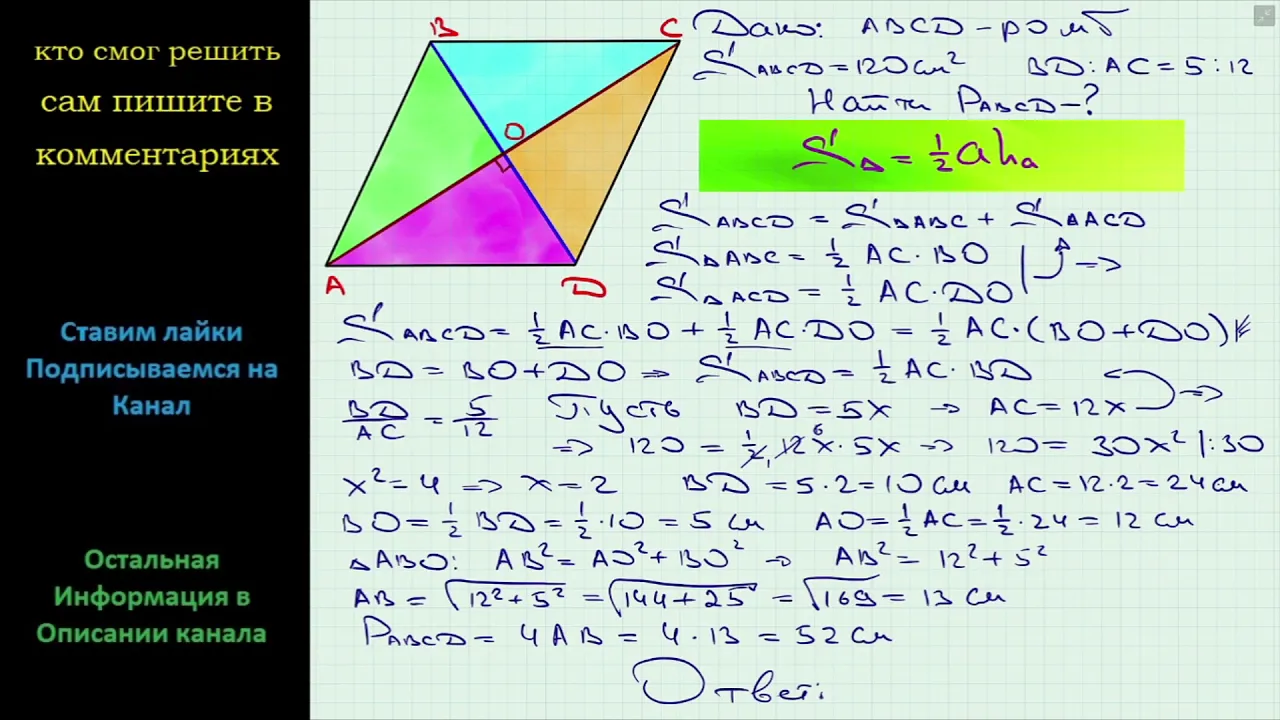 кто смог решить
сам пишите в
комментариях
Ставим лайки
Подписываемся на
Канал
Остальная
Информация в
Описании канала
B
C
O
A
D
Дано: ABCD – ромб
S ABCD = 120 см² BD : AC = 5 : 12
Найти P ABCD – ?
S△ = ½ a hₐ
S ABCD = S△ABC + S△ACD
S△ABC = ½ AC · BO
S△ACD = ½ AC · DO =>
S ABCD = ½ AC · BO + ½ AC · DO = ½ AC · (BO + DO)
BD = BO + DO => S ABCD = ½ AC · BD
BD/AC = 5/12 Пусть BD = 5x → AC = 12x =>
=> 120 = ½ · 12x · 5x => 120 = 30x² |: 30
6
1
x² = 4 => x = 2 BD = 5 · 2 = 10 см AC = 12 · 2 = 24 см
BO = ½ BD = ½ · 10 = 5 см AO = ½ AC = ½ · 24 = 12 см
△ABO: AB² = AO² + BO² → AB² = 12² + 5²
AB = √12² + 5² = √144 + 25 = √169 = 13 см
P ABCD = 4 AB = 4 · 13 = 52 см
Ответ: